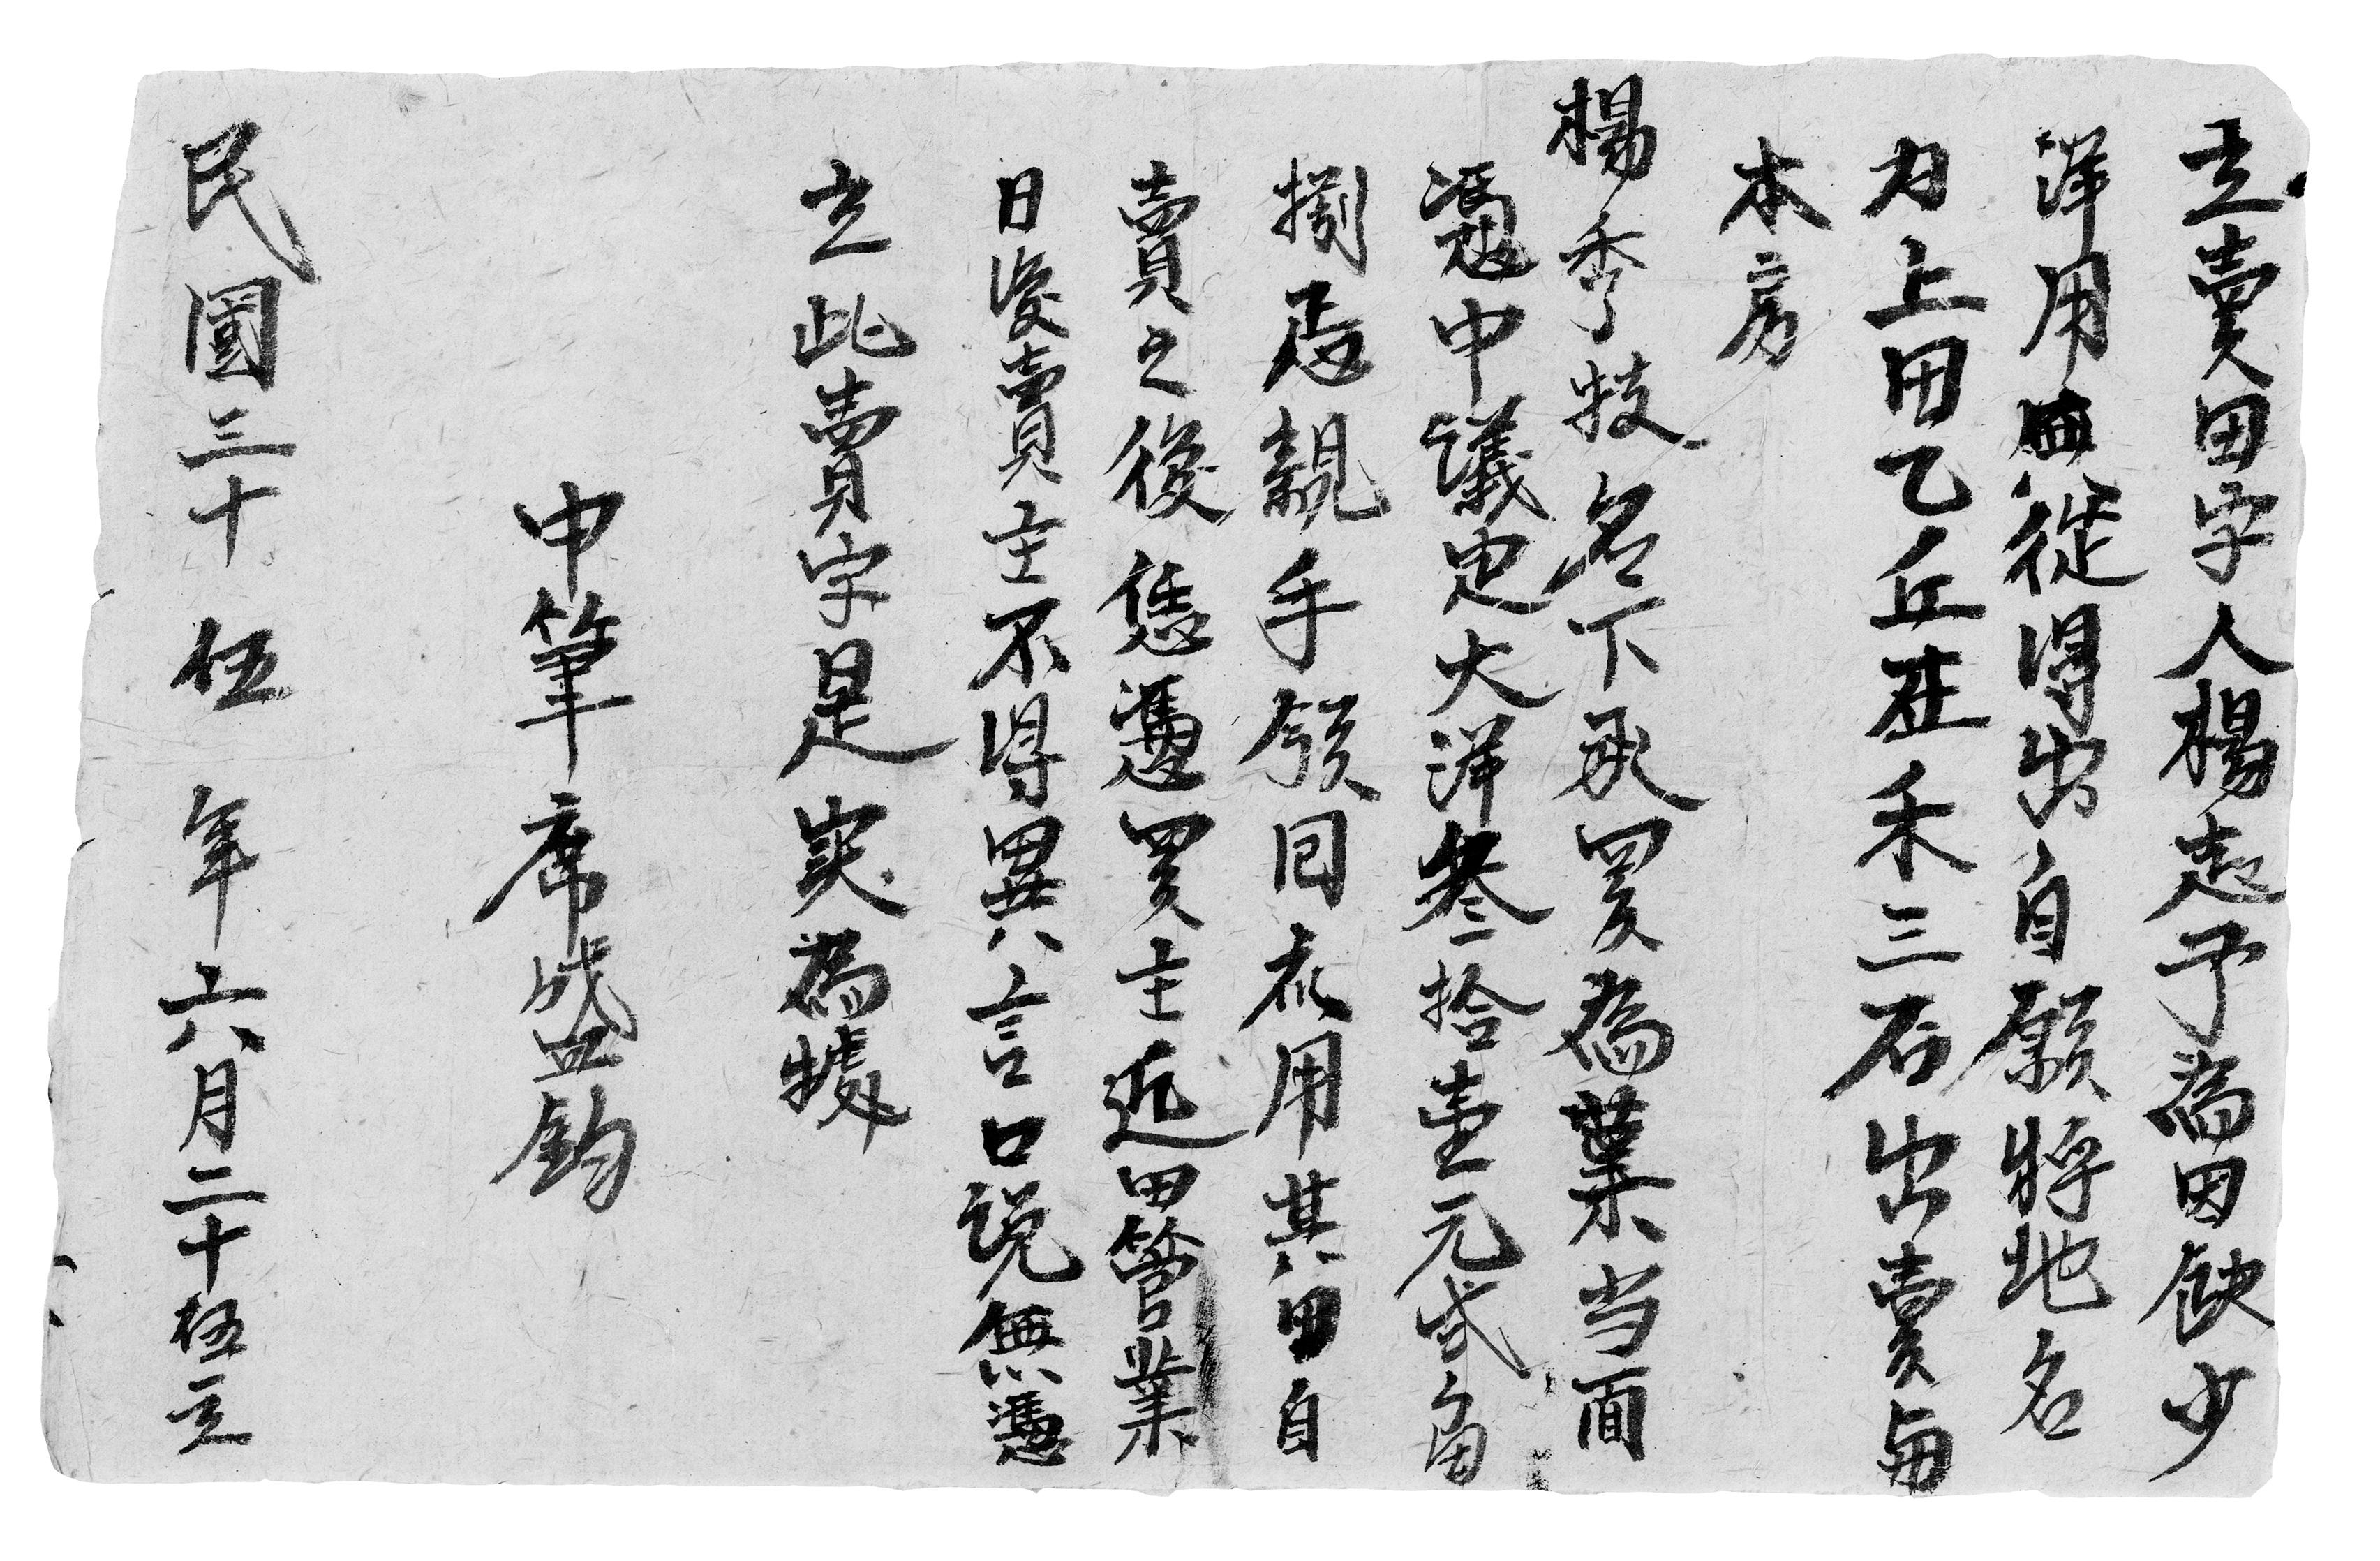 立賣田字人楊志予為因缺少
洋用無從得出自願將地名
力上田乙丘在禾三石出賣與
本房
楊秀枝名下承買為業当面
憑中議定大洋叁拾壹元弍角
捌是親手領回衣用其田自
賣之後恁憑買主近田管業
日後賣主不得異言口説無憑
立此賣字是实為據
中筆席盛鈞
民國三十伍年六月二十伍立